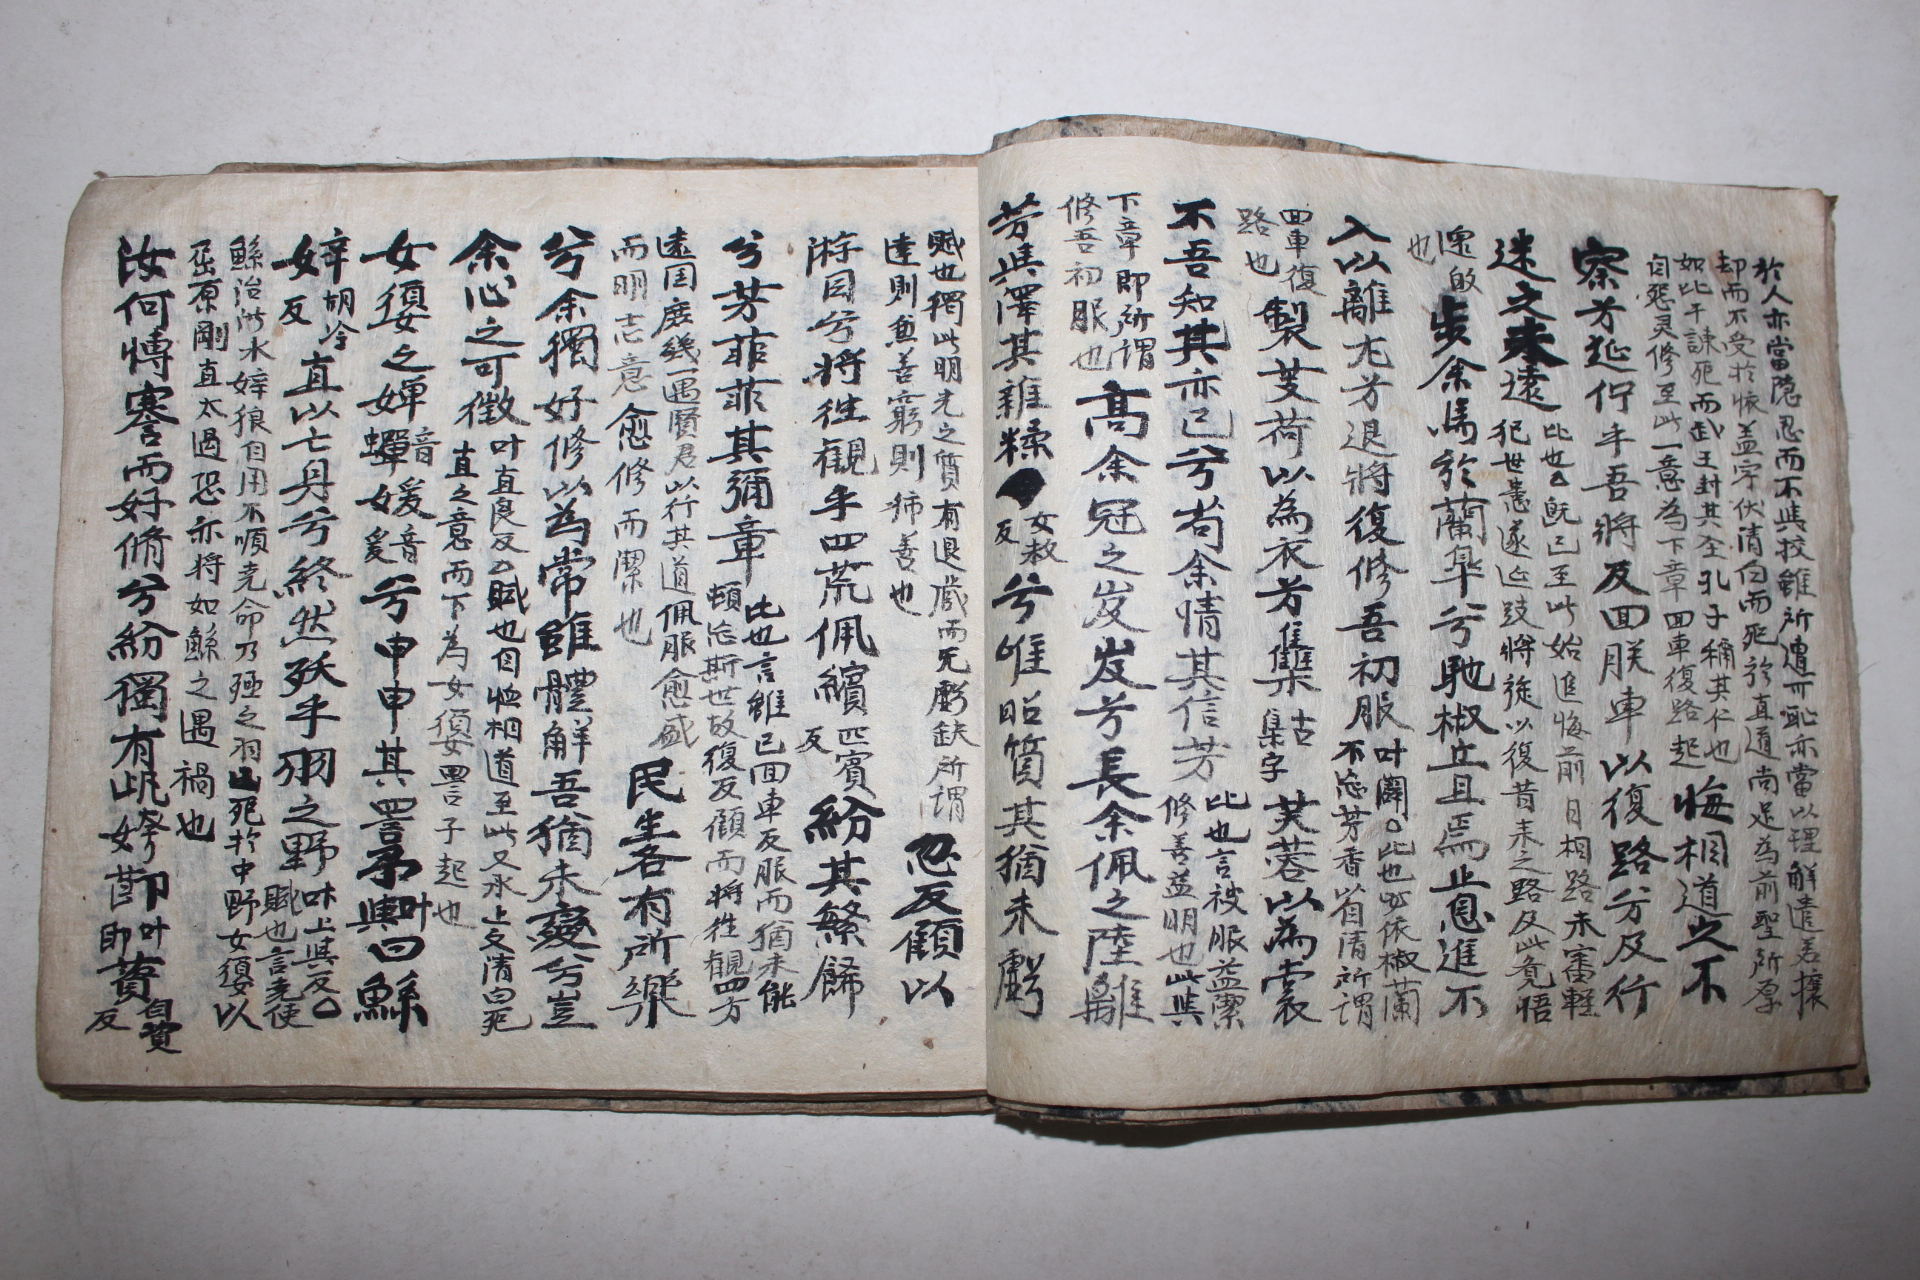 於人亦當隐忍而不與校雖所遣可恥亦當以理解遣若攘
却而不受於懷盖宁伏清白而死於直道尚足為前聖所厚
如比干諫死而武王封其
孔子稱其仁也
自怨灵修至此一意為下章回車復路起
悔相道之不
察兮延佇乎吾將反回朕車以復路兮及行
迷之未遠
比也
既已至此始追悔前日相路未審輕
犯世患遂
將旋以復昔来之路及此覓悟
還的
也
步余馬於蘭皐兮馳椒丘且焉止息進不
入以離尤兮退將復修吾初服
叶
比也
依椒蘭
不忘芳香以自清所謂
回車復
路也
製芰荷以為衣兮集
古
集字
芙蓉以為裳
不吾知其亦已兮苟余情其信芳
比也言被服益潔
修善益明也此與
下章即所謂
修吾初服也
高余冠之岌岌兮長余佩之陸離
芳與澤其雜糅
女救
反
兮唯昭
其猶未虧
賦也獨此明光之質有退藏而无虧缺所謂
達則兼善窮則
善也
忽反顧以
游目兮將往觀乎四荒佩繽
匹賓
反
紛其繁餙
兮芳菲菲其彌章
比也言雖已回車反服而猶未能
頓忘斯世故復反顧而將往觀四方
遠国庶幾一遇賢君以行其道佩服愈盛
而明志意愈修而潔也
民生各有所樂
兮余獨好修以為常雖體解吾猶未變兮豈
余心之可徵
叶直良反
賦也自恤相道至此又承上文清白死
直之意而下為女嬃詈予起也
女嬃之嬋
音
蟬
媛
音
爰
兮申申其詈予
叶
與
曰鯀
婞
胡冷
反
直以亡身兮終然殀乎羽之野
叶上與反
賦也言堯使
鯀治洪水婞狠自用不順堯命乃殛之羽
死於中野女嬃以
屈原剛直太過恐亦将如鯀之遇禍也
汝何博謇而好脩兮紛獨有此姱節
叶
即
薋
自資
反